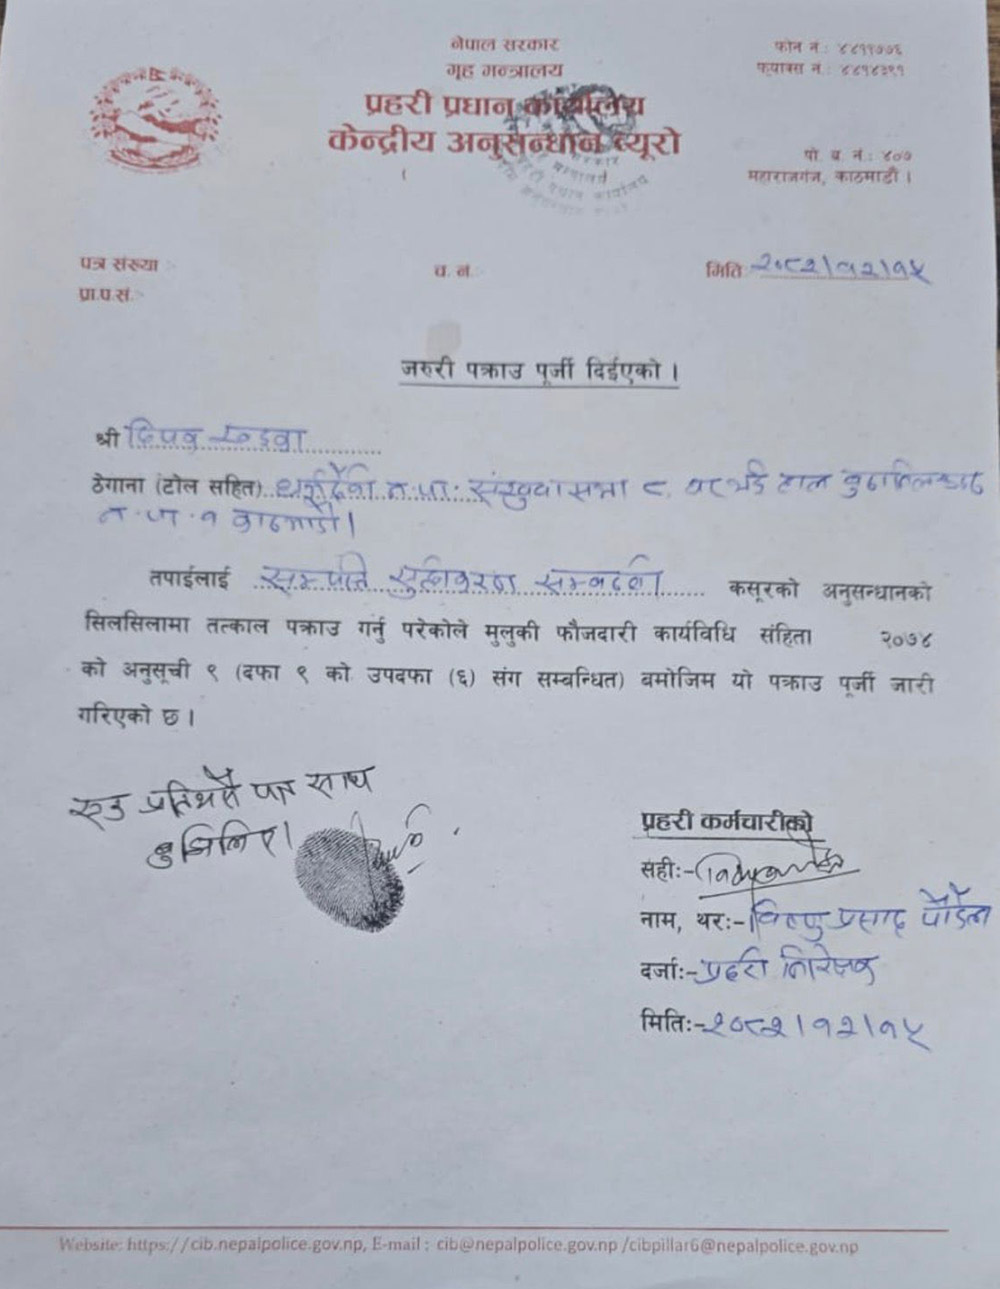 नेपाल सरकार
गृह मन्त्रालय
प्रहरी प्रधान कार्यालय
केन्द्रीय अनुसन्धान ब्यूरो
फोन नं : ४४११७७६
फ्याक्स नं : ४४१४३९१
पो. ब. नं : ४०७
महाराजगंज, काठमाडौं ।
पत्र संख्या :-
प्रा.प.सं.:-
च. नं.
मिति २०८२।१२।१५
जरुरी पक्राउ पूर्जी दिईएको ।
श्री दिपक खड्का
ठेगाना (टोल सहित) धर्मदेवी न.पा. संखुवासभा ८ घर भई हाल बुढानिलकण्ठ
न.पा. १ काठमाडौं।
तपाईलाई सम्पत्ति शुद्धिकरण सम्बन्धी कसूरको अनुसन्धानको
सिलसिलामा तत्काल पक्राउ गर्नु परेकोले मुलुकी फौजदारी कार्यविधि संहिता २०७४
को अनुसूची ९ (दफा ९ को उपदफा (६) संग सम्बन्धित) बमोजिम यो पक्राउ पूर्जी जारी
गरिएको छ ।
एउ प्रति मैले पाए साथ
बुझिलिए।
प्रहरी कर्मचारीको
सही:-
नाम, थर:- विष्णु प्रसाद पौडेल
दर्जा:- प्रहरी निरिक्षक
मिति:- २०८२।१२।१५
Website: https://cib.nepalpolice.gov.np, E-mail : cib@nepalpolice.gov.np /cibpillar6@nepalpolice.gov.np